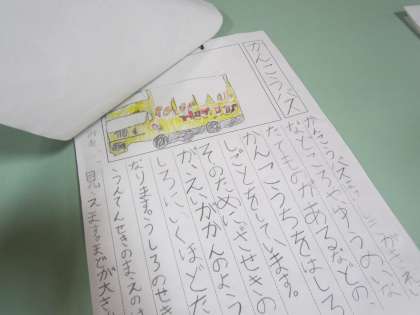 かんこうバス
かんこうバスは、
なところやゆうめいな
たてものがあるなどの、
かんこうちをはしる
しごとをしています。
そのために、ざせきの
が、えいがかんのよう
しろにいくほどた
なります。うしろのせき
うんてんせきのまえの
見え
まどが大き